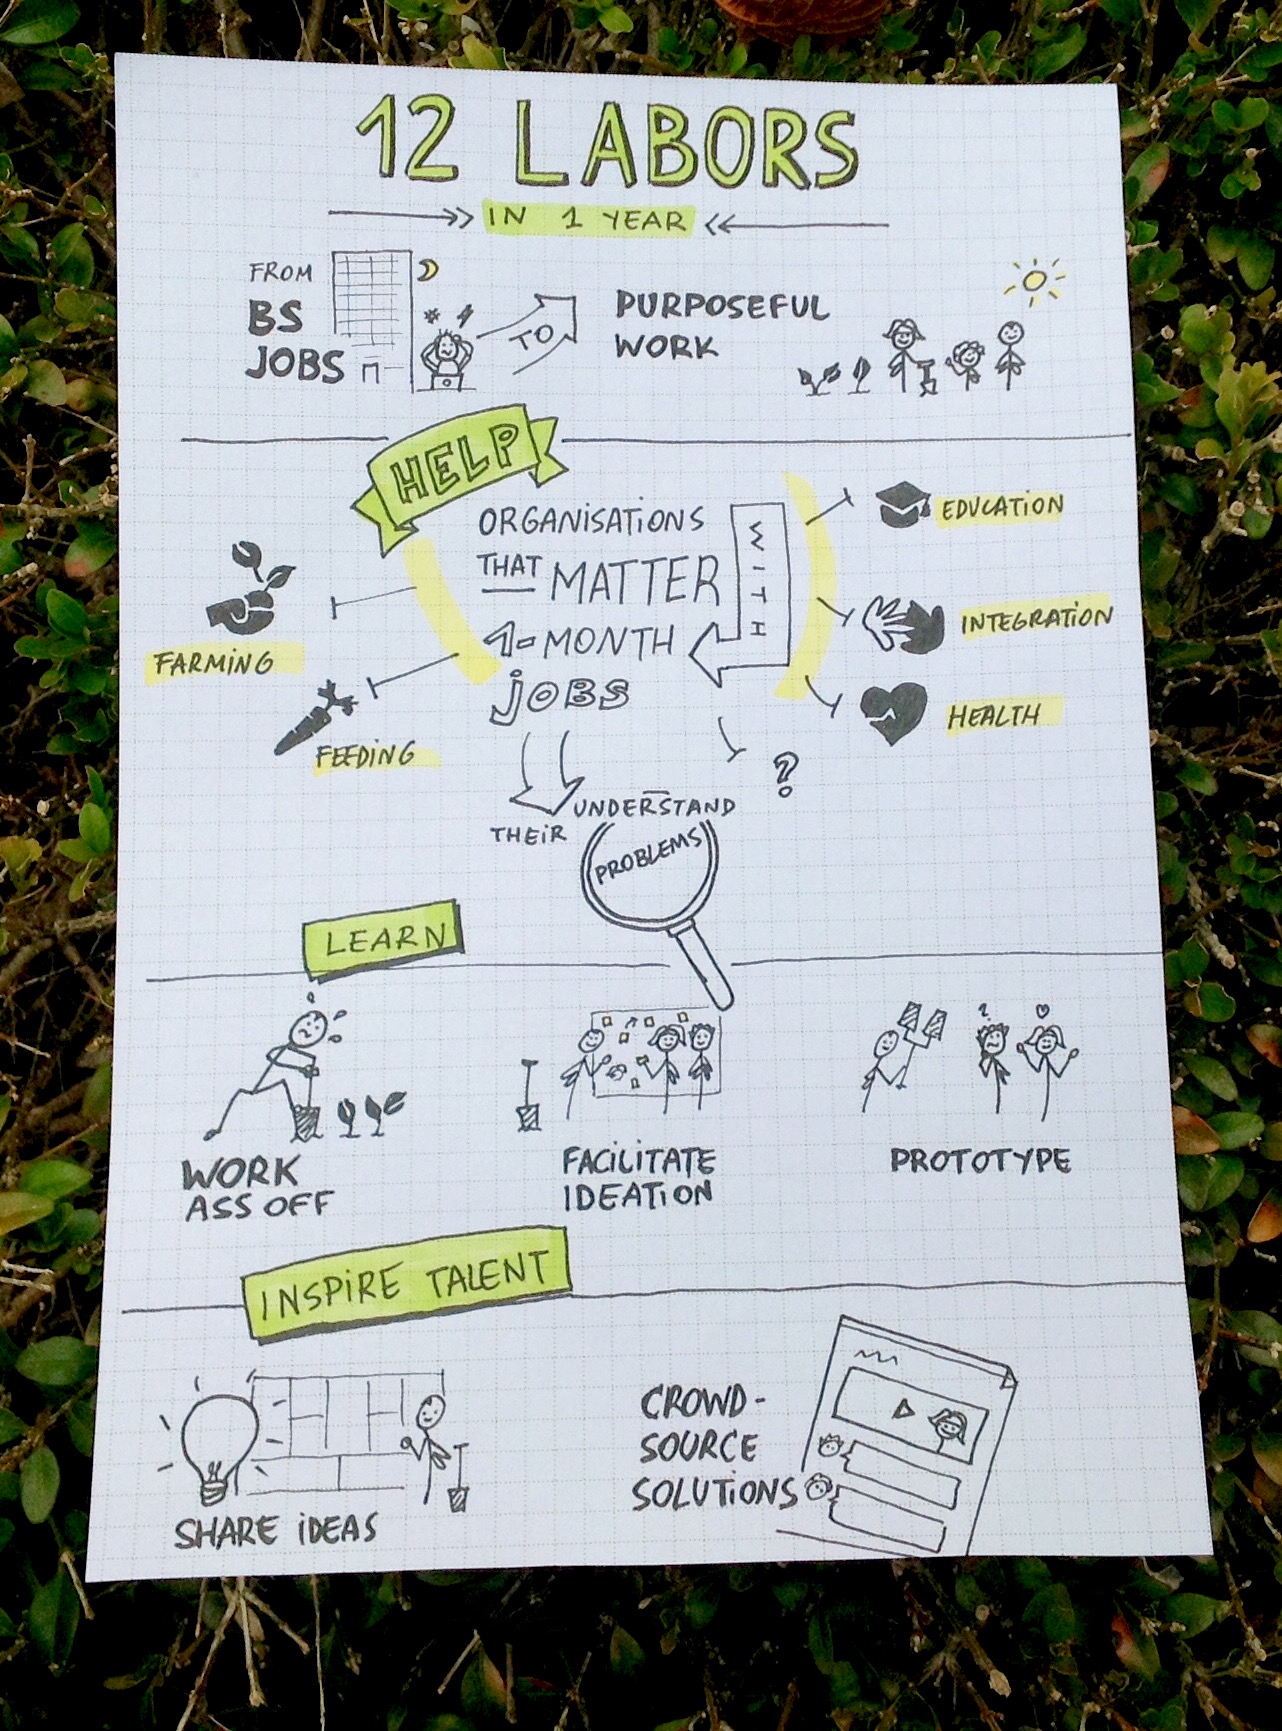 12 LABORS
IN 1 YEAR
FROM
BS
JOBS
TO
PURPOSEFUL
WORK
HELP
ORGANISATIONS
THAT MATTER
1-MONTH
JOBS
WITH
EDUCATION
INTEGRATION
HEALTH
?
FARMING
FEEDING
UNDERSTAND
THEIR
PROBLEMS
LEARN
WORK
ASS OFF
FACILITATE
IDEATION
?
PROTOTYPE
INSPIRE TALENT
SHARE IDEAS
CROWD-
SOURCE
SOLUTIONS